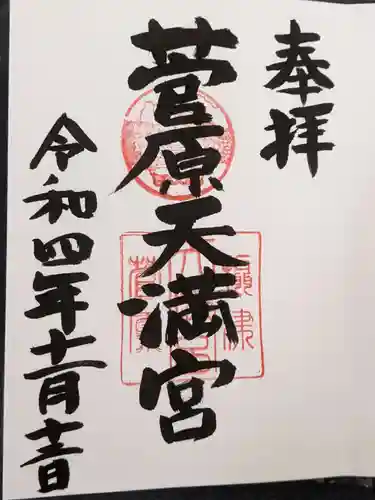 奉拝
菅原天満宮
令和四年十一月十三日